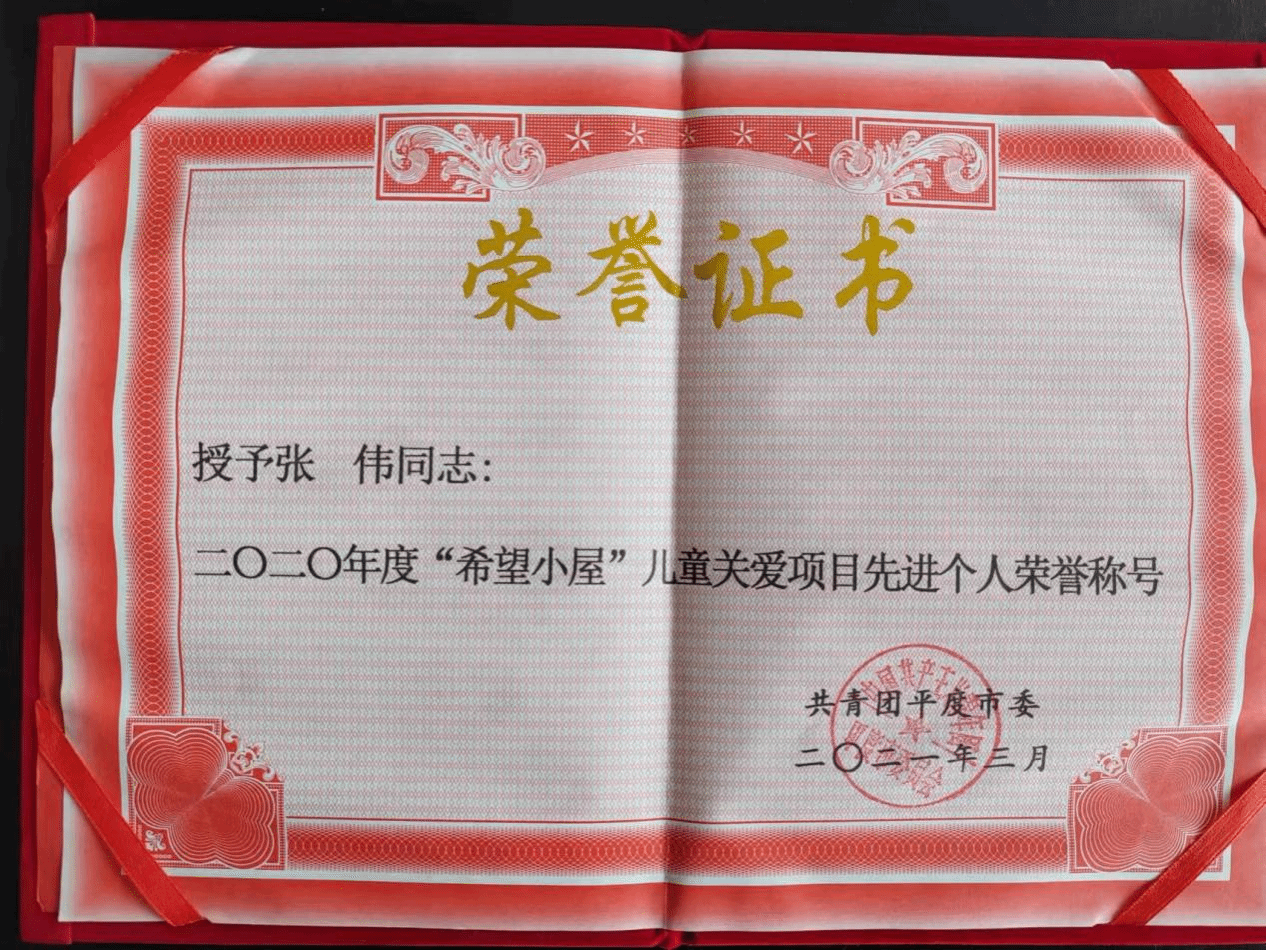 荣誉证书
授予张 伟同志：
二〇二〇年度“希望小屋”儿童关爱项目先进个人荣誉称号
共青团平度市委
二〇二一年三月